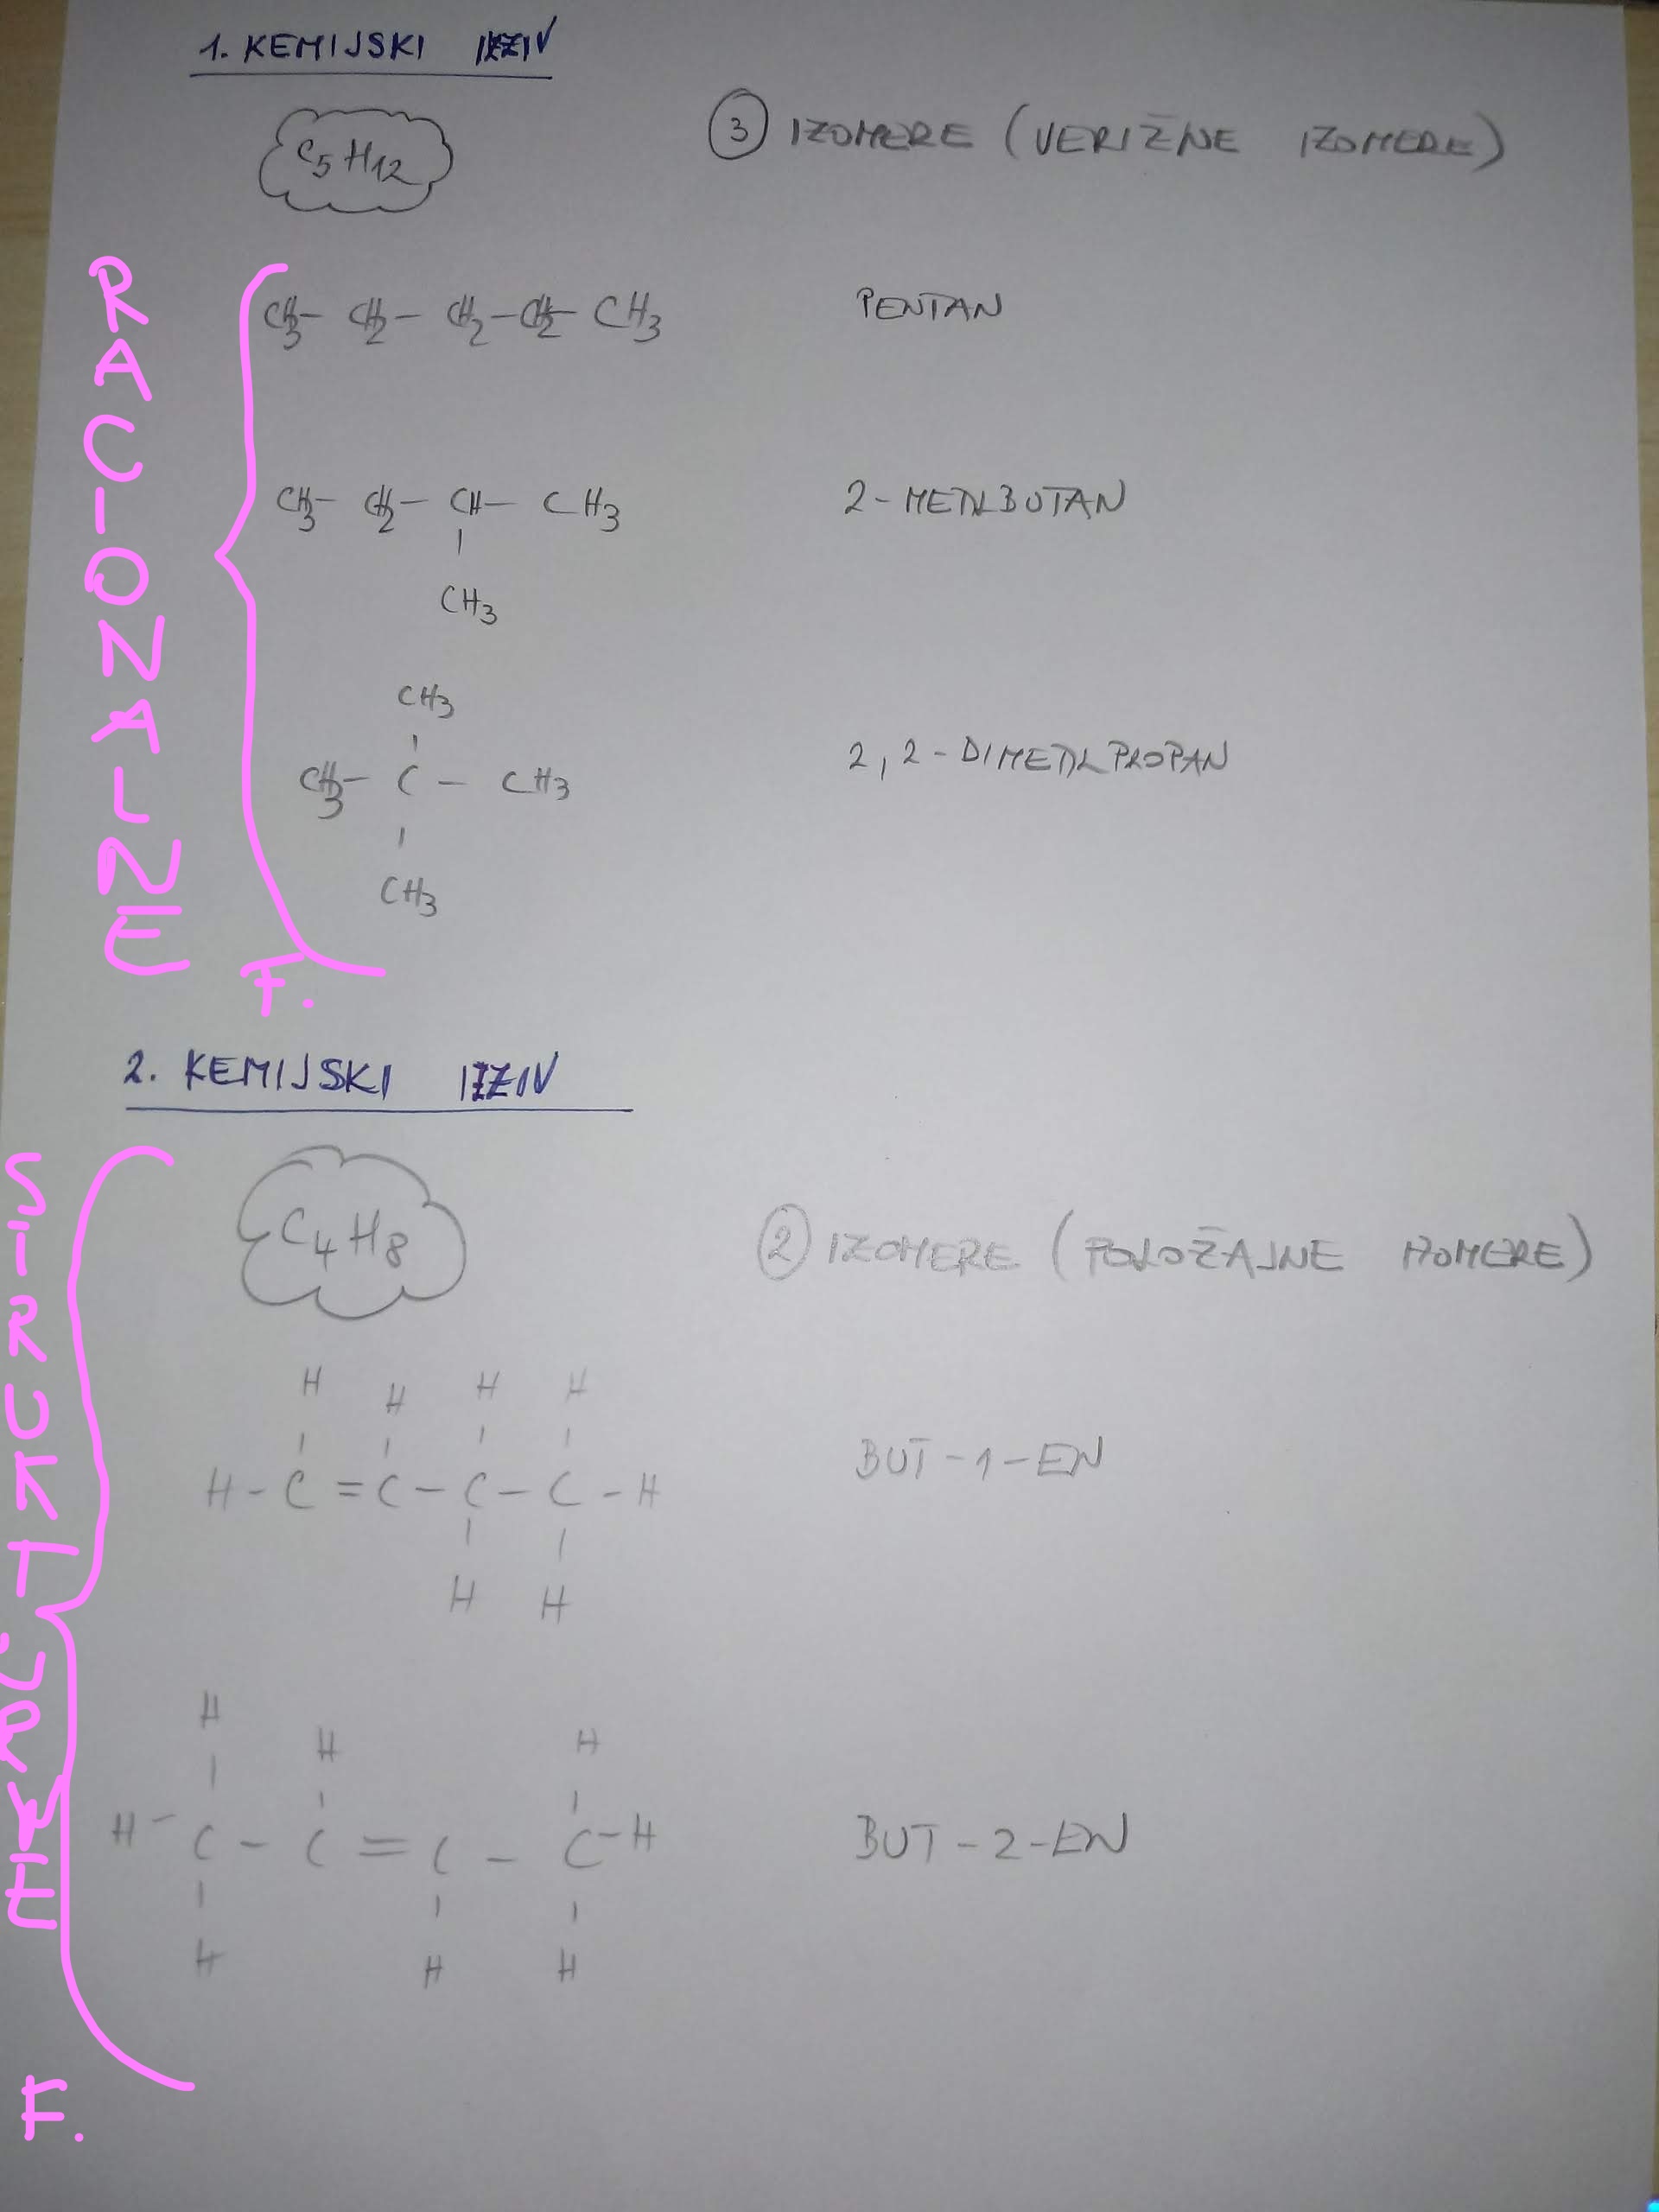 1. KEMIJSKI IZZIV
C5H12
3 IZOMERE (VERIŽNE IZOMERE)
RACIONALNE F.
CH3- CH2- CH2-CH2- CH3 PENTAN
CH3- CH2- CH- CH3 2-METILBUTAN
CH3
CH3
CH3- C - CH3 2,2-DIMETILPROPAN
CH3
2. KEMIJSKI IZZIV
STRUKTURNE F.
C4H8
2 IZOMERE (POLOŽAJNE IZOMERE)
H H H H
H-C=C-C-C-H BUT-1-EN
H H
H H H
H-C-C=C-C-H BUT-2-EN
H H H